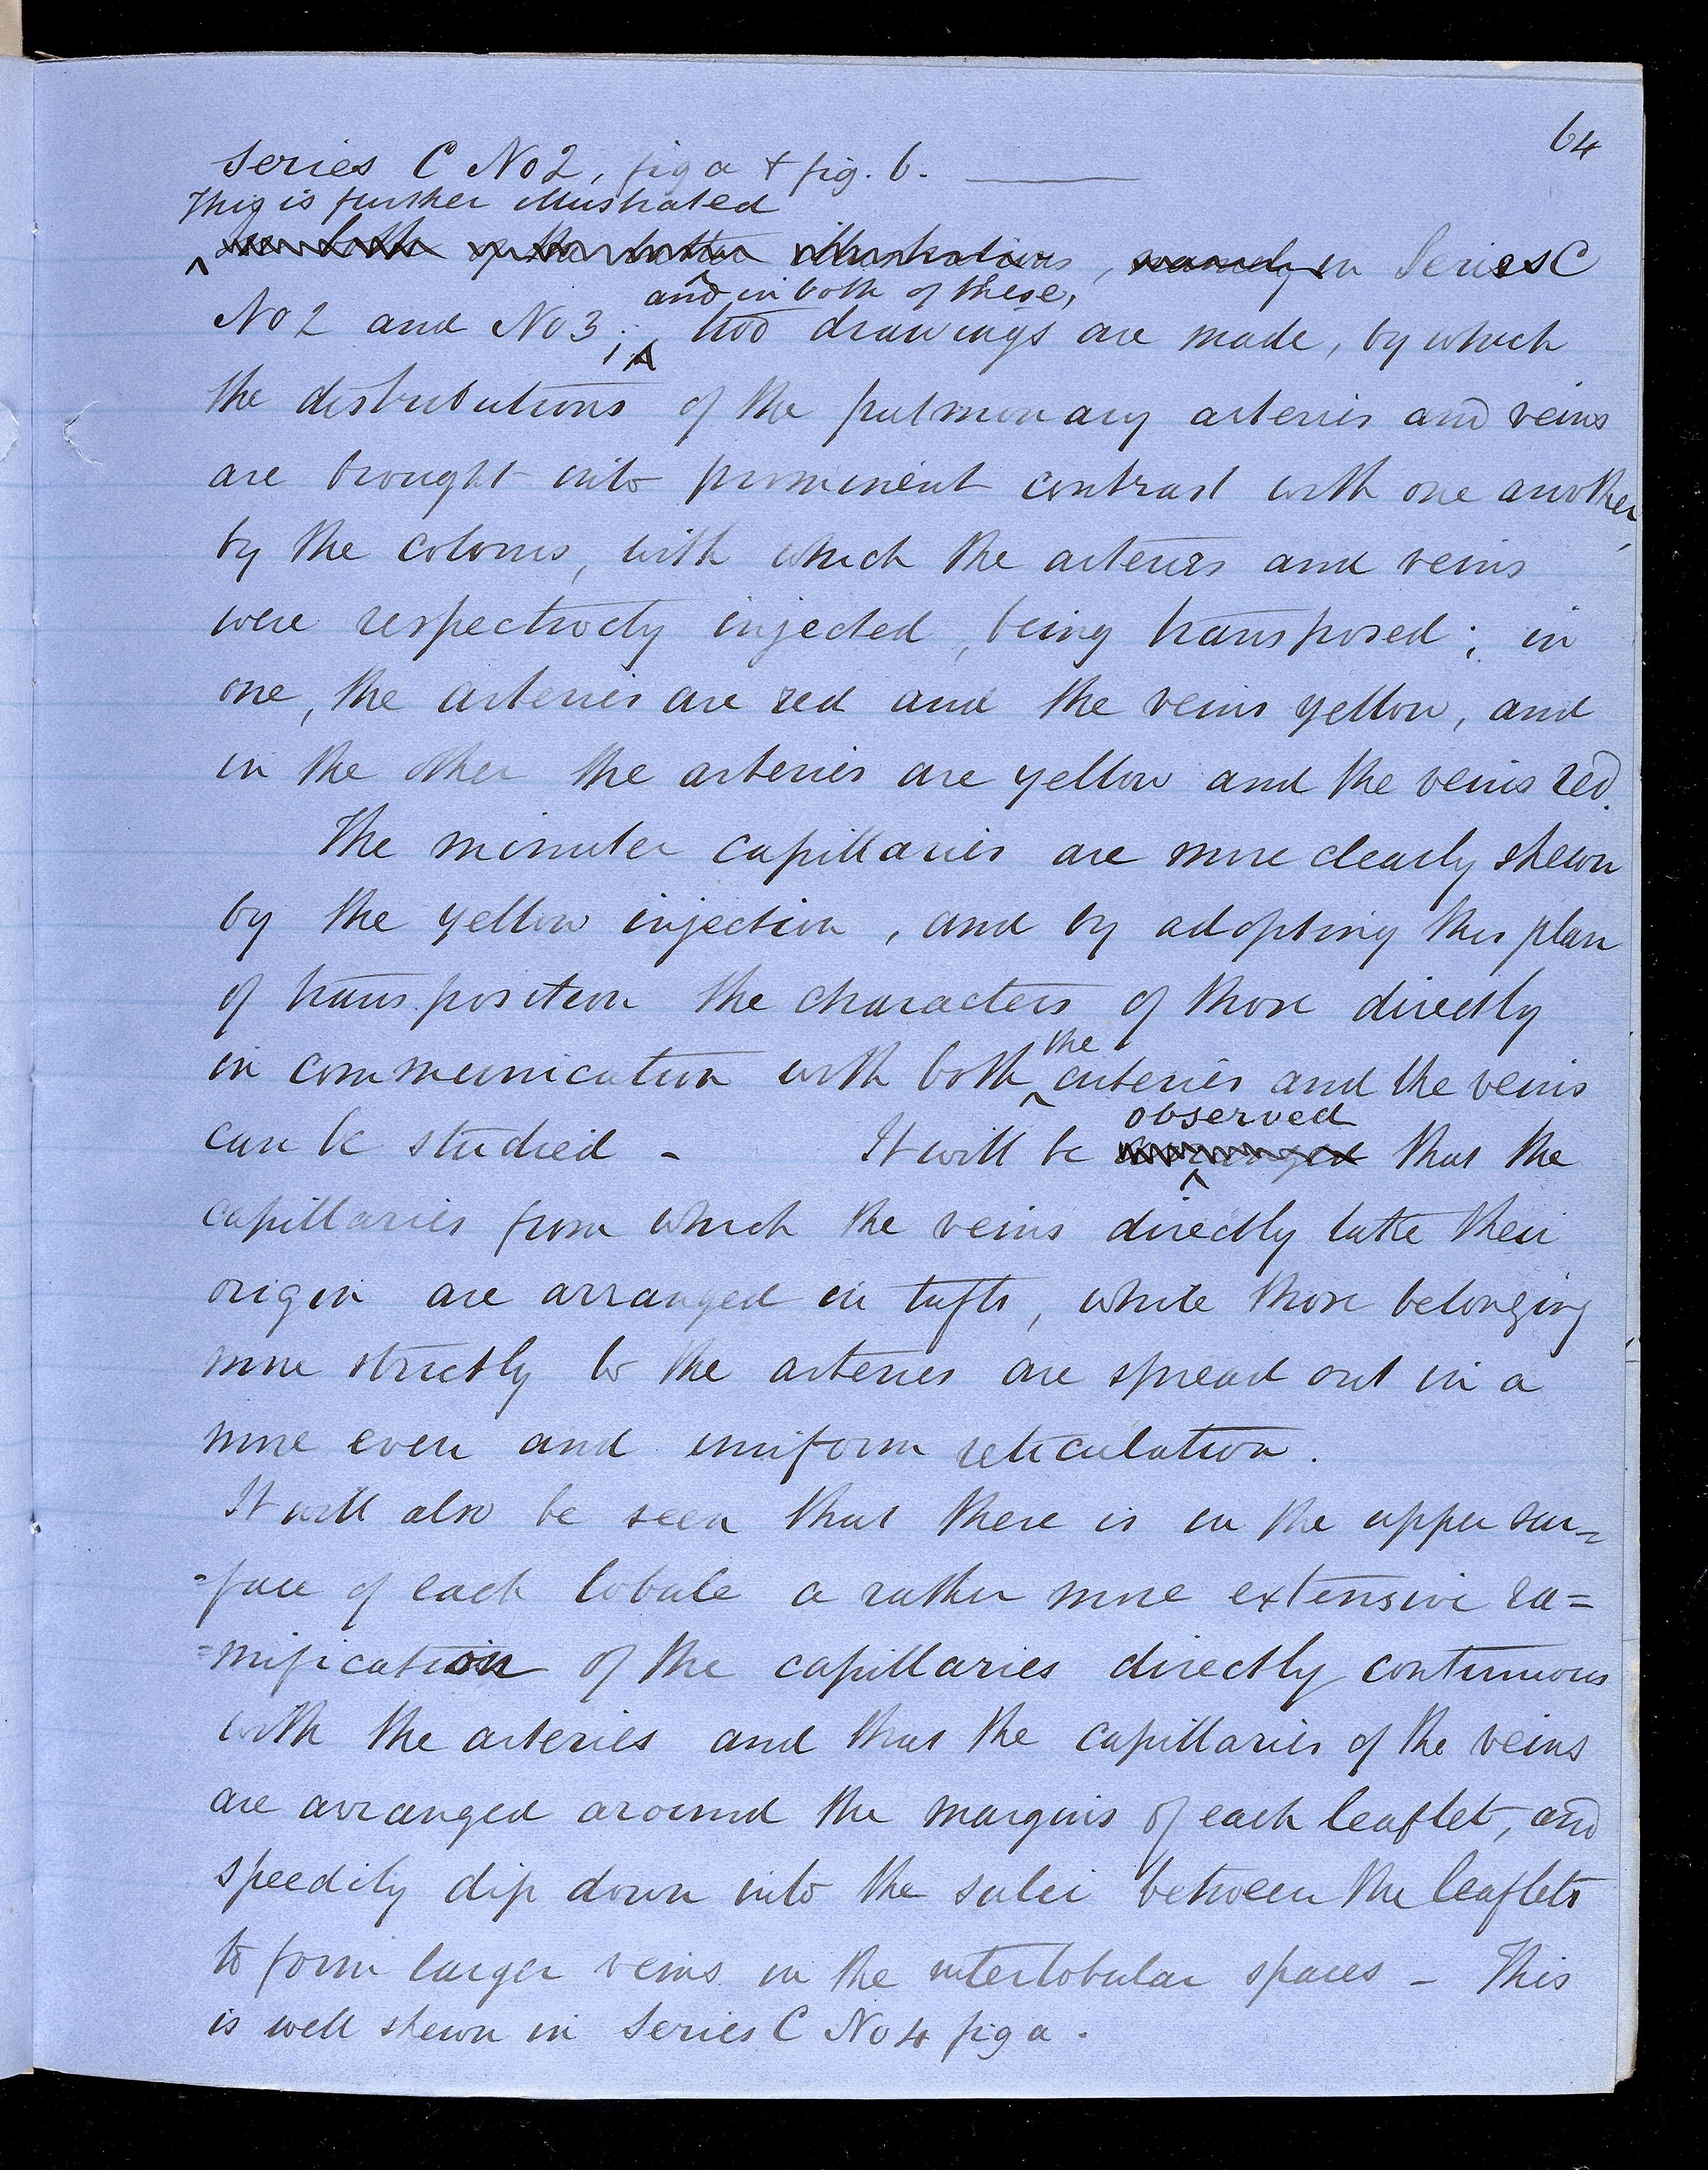 64
Series C No 2, fig a & fig. b. ———
This is further illustrated
illustrations, namely in Series C
and in both of these,
No 2 and No 3; two drawings are made, by which
the distributions of the pulmonary arteries and veins
are brought into prominent contrast with one another,
by the colours, with which the arteries and veins
were respectively injected, being transposed; in
one, the arteries are red and the veins yellow, and
in the other the arteries are yellow and the veins red.
The minuter capillaries are more clearly shewn
by the yellow injection, and by adopting this plan
of transposition the characters of those directly
the
in communication with both arteries and the veins
observed
can be studied - It will be that the
capillaries from which the veins directly take their
origin are arranged in tufts, while those belonging
more strictly to the arteries are spread out in a
more even and uniform reticulation.
It will also be seen that there is in the upper sur=
=face of each lobule a rather more extensive ra=
=mification of the capillaries directly continuous
with the arteries and that the capillaries of the veins
are arranged around the margins of each leaflet, and
speedily dip down into the sulci between the leaflets
to form larger veins in the interlobular spaces - This
is well shewn in Series C No 4 fig a.